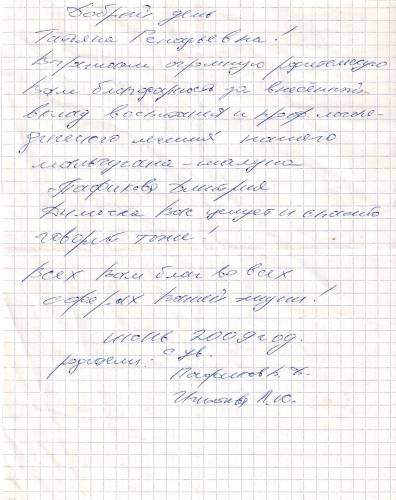 Добрый день
Татьяна Генадьевна!
Выражаем огромную родительскую
Вам благодарность за внесённый
вклад воспитания и проф. логопе-
дического лечения нашего
мальчугана-шалуна
Дмитрия
Димочка Вас целует и спасибо
говорит тоже!
Всех Вам благ во всех
сферах Вашей жизни!
июнь 2009 год.
родители: с ув.